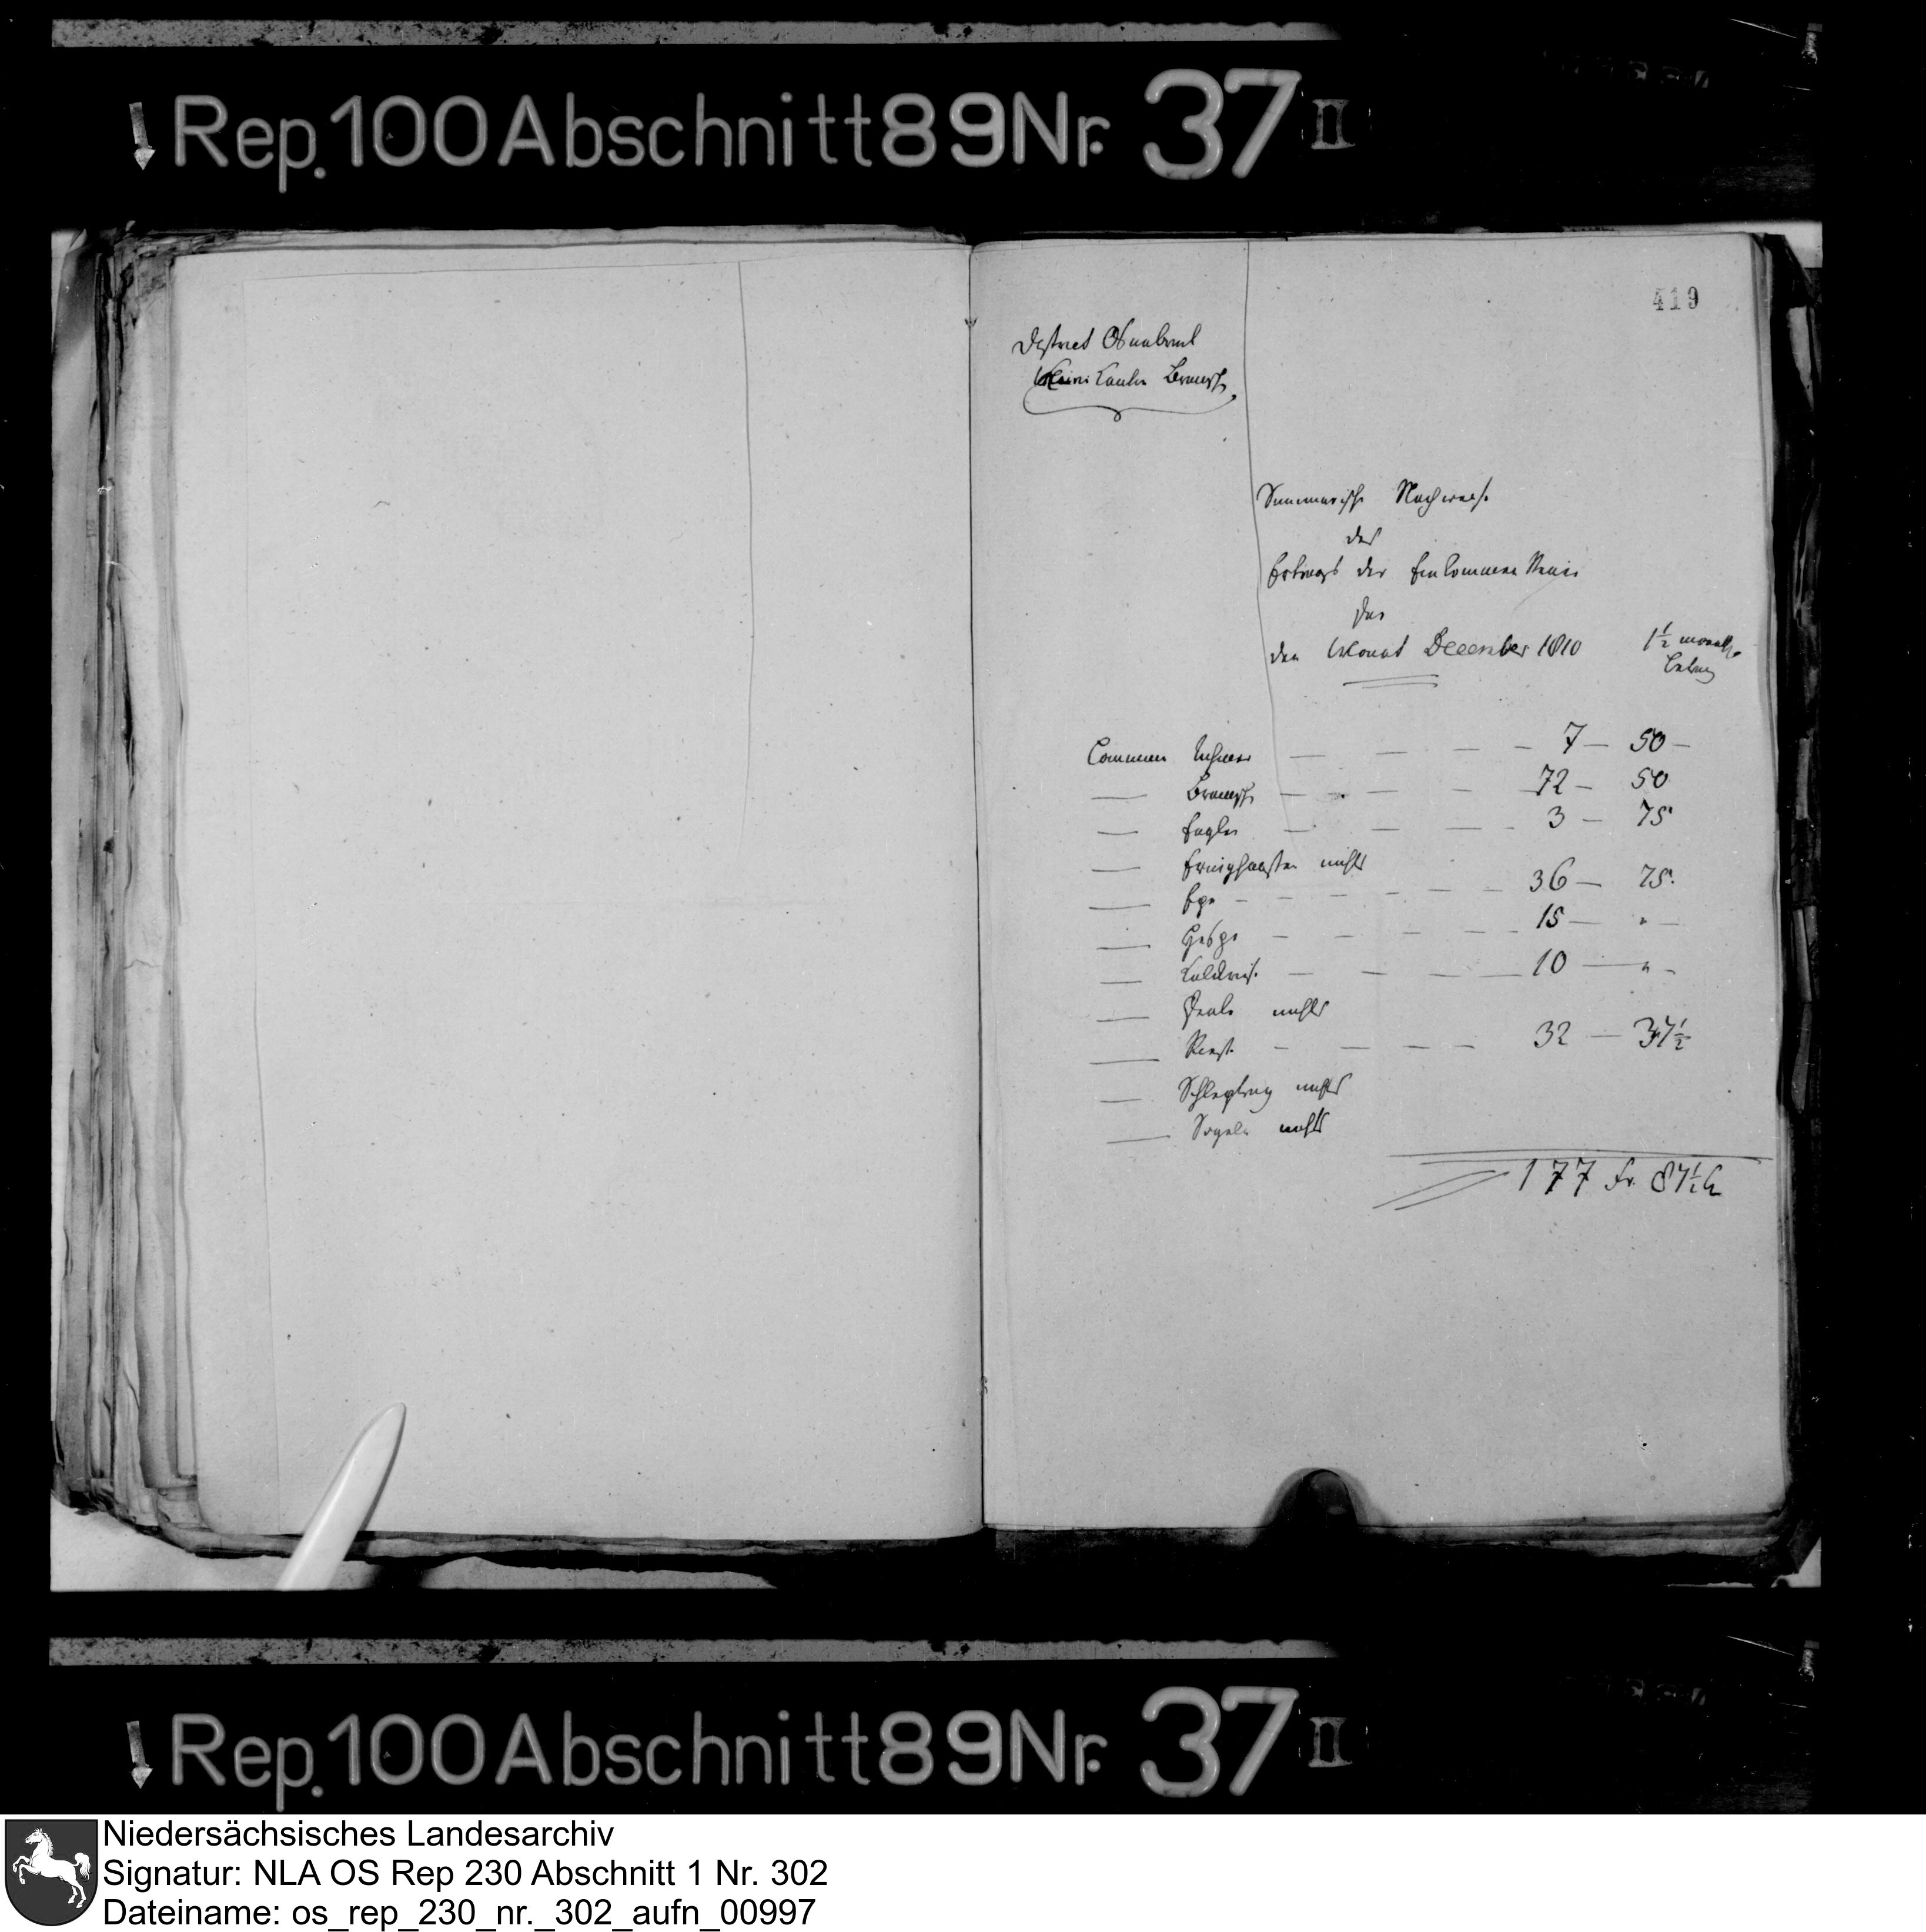 Rep. 100 Abschnitt 89 Nr. 37 II
419
District Osnabrück
Canton Bramsche
Summarische Nachweise
des
Ertrags der Einkommen Steuer
für
den Monat December 1810
1 1/2 monatl.
Betrag
Commun Achmer — — — — 7 — 50 —
— Bramsche — — — — 72 — 50
— Engter — — — — 3 — 75
— nichts
— Epe — — — — — — 36 — 75.
— Hesepe — — — — — 15 — " —
— Kalckriese — — — — 10 — " —
— Pente nichts
— Rieste — — — — 32 — 37 1/2
— Schleptrup nichts
— Sögeln nichts
177 Fr. 87 1/2 C
Rep. 100 Abschnitt 89 Nr. 37 II
Niedersächsisches Landesarchiv
Signatur: NLA OS Rep 230 Abschnitt 1 Nr. 302
Dateiname: os_rep_230_nr._302_aufn_00997